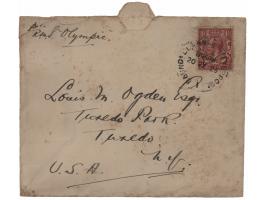 R.M.S. Olympic.
Louis M. Ogden Esq.
Tuxedo Park.
Tuxedo
N.Y.
U.S.A.